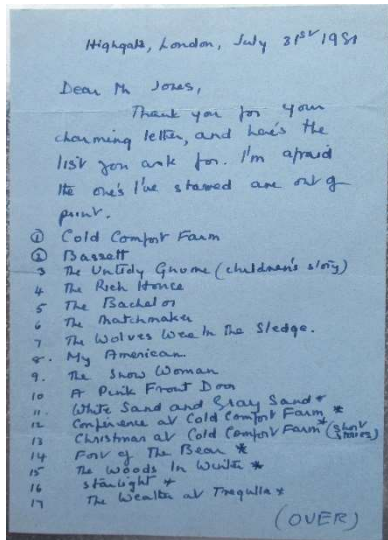 Highgate, London, July 31st 1981
Dear Mr Jones,
Thank you for your
charming letter, and here's the
list you ask for. I'm afraid
the one's I've starred are out of
print.
① Cold Comfort Farm
② Bassett
3 The Untidy Gnome (children's story)
4 The Rich House
5 The Bachelor
6 The Matchmaker
7 The Wolves Were In the Sledge.
8. My American
9. The Snow Woman
10 A Pink Front Door
11. White Sand and Gray Sand *
12 Conference at Cold Comfort Farm *
13 Christmas at Cold Comfort Farm * (short stories)
14 Fort of The Bear *
15 The Woods In Winter *
16 Starlight *
17 The Weather at Tregulla *
(OVER)